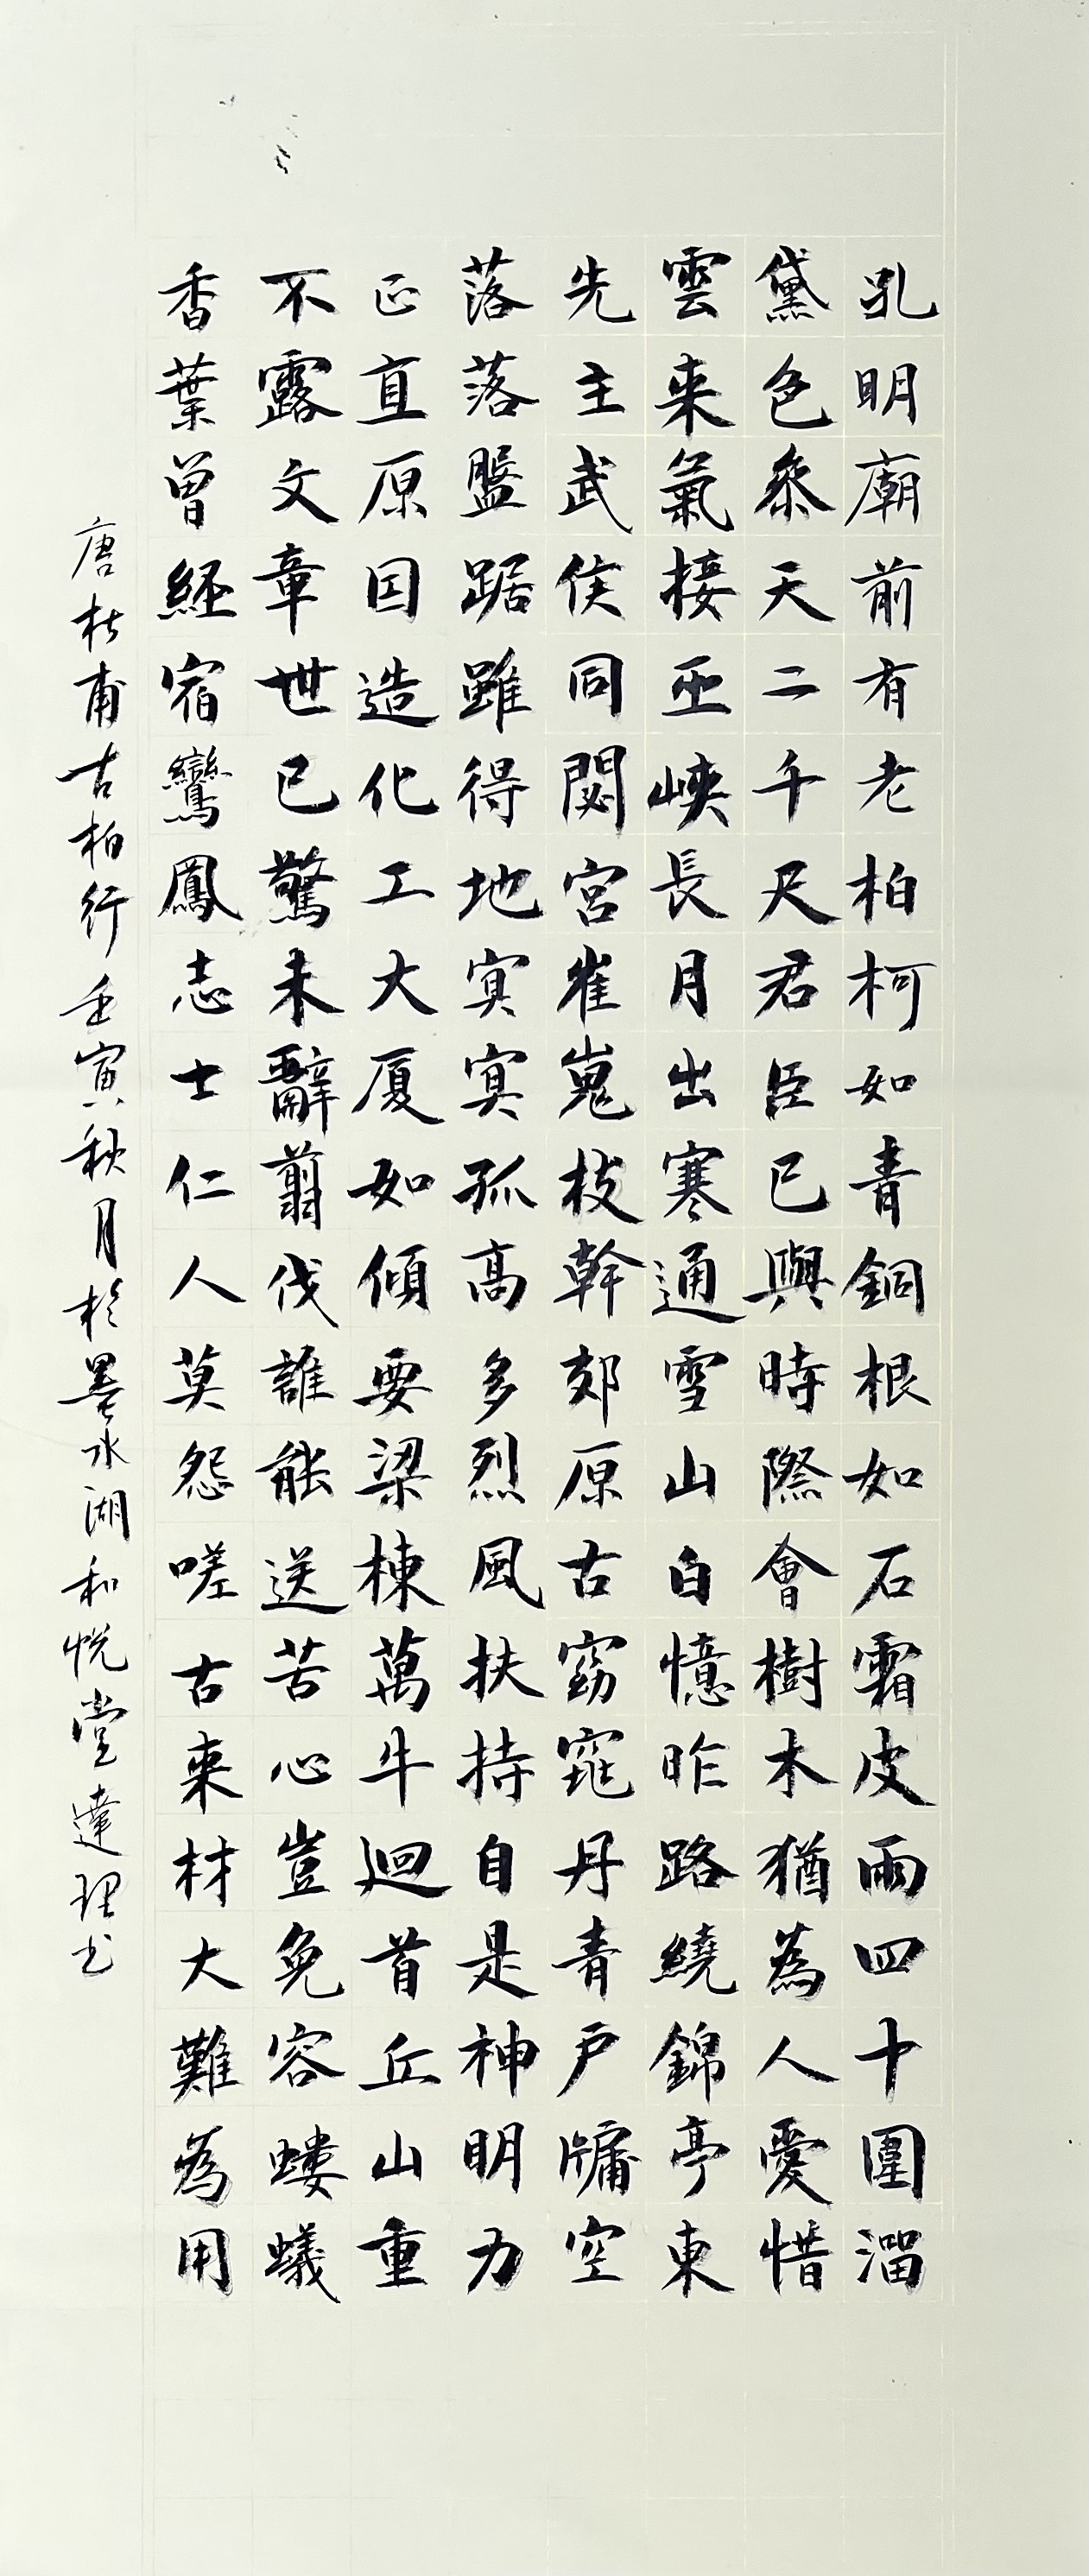 孔明廟前有老柏柯如青銅根如石霜皮雨四十圍溜
黛色參天二千尺君臣已與時際會樹木猶為人愛惜
雲来氣接巫峽長月出寒通雪山白憶昨路繞錦亭東
先主武侯同閟宮崔嵬枝幹郊原古窈窕丹青户牖空
落落盤踞雖得地冥冥孤高多烈風扶持自是神明力
正直原因造化工大厦如傾要梁棟萬牛迴首丘山重
不露文章世已驚未辭翦伐誰能送苦心豈免容螻蟻
香葉曾經宿鸞鳳志士仁人莫怨嗟古来材大難為用
唐杜甫古柏行壬寅秋月於墨水湖和悦堂達理书